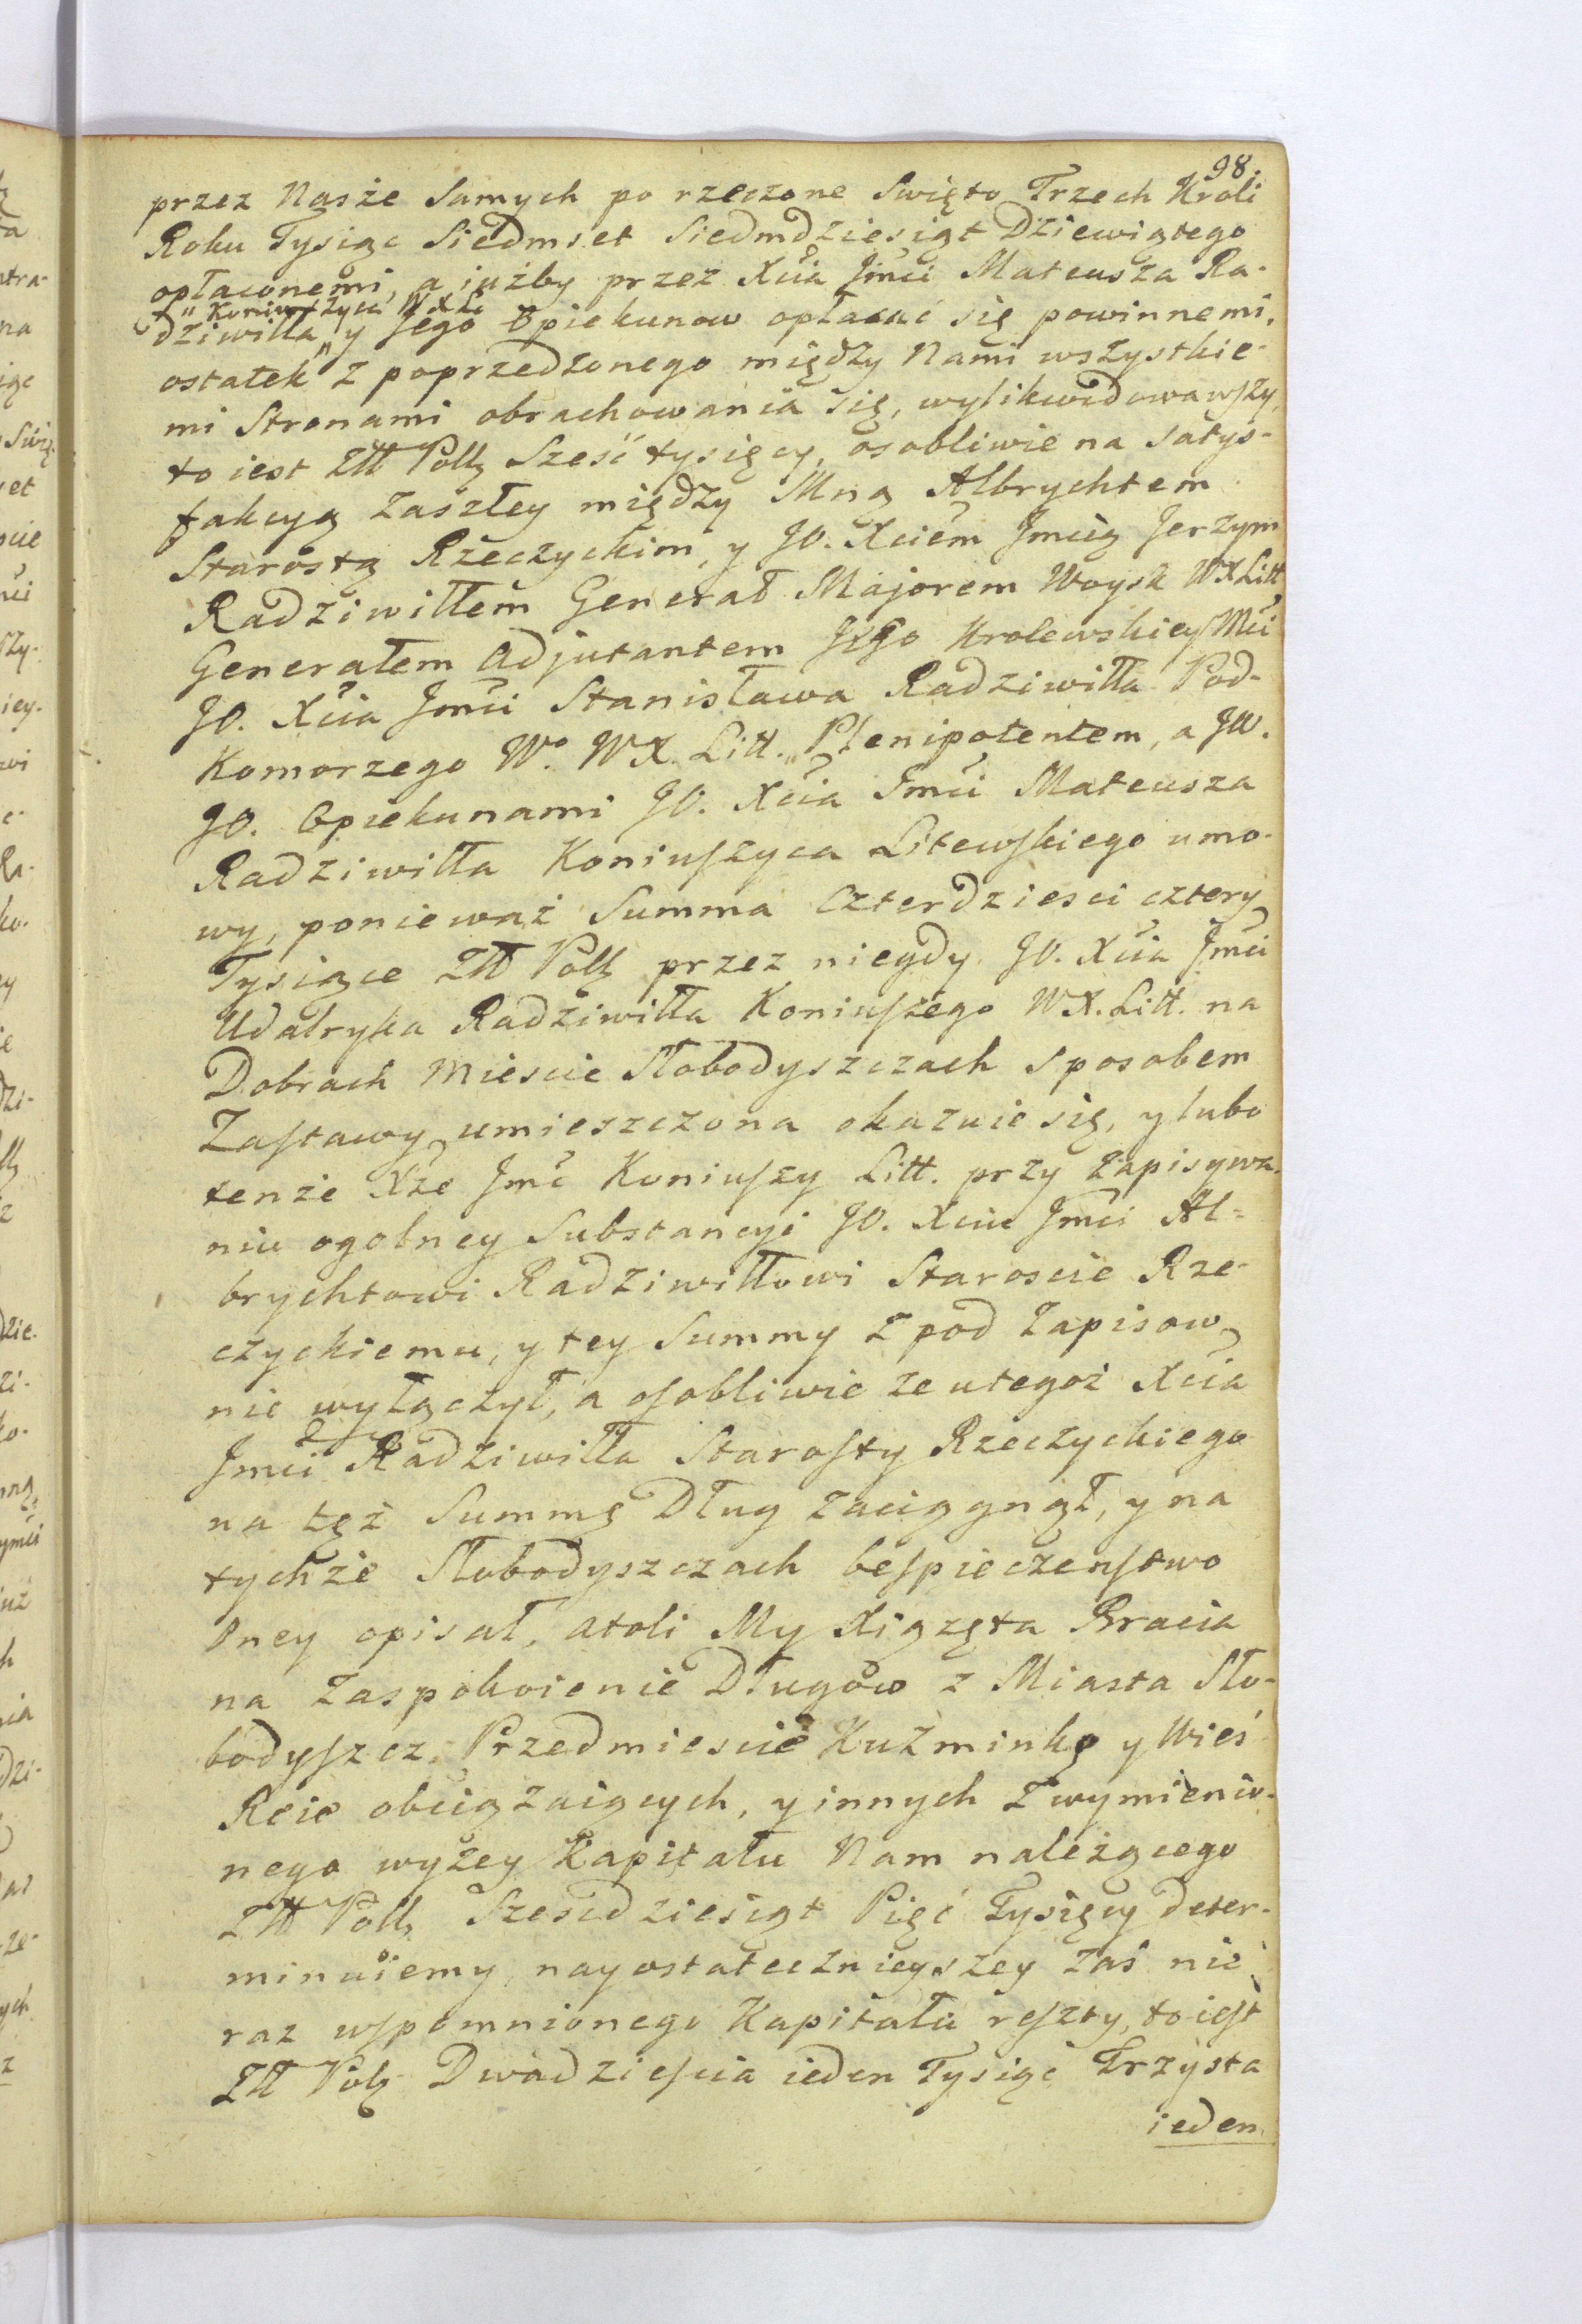 98.
przez Nasże Samych po rzeczone Swięto Trzech Kroli
Roku Tysiąc Siedmset Siedmdziesiąt Dziewiątego
opłaconemi, a iużby przez Xcia Jmci Mateusza Ra-
„Koniuszyca WXL
dziwiłła„ y Jego Opiekunow opłacać się powinnemi,
ostatek z poprzedzonego między Nami wszystkie-
mi Stronami obrachowania się, wylikwidowawszy,
to iest Złł Polł Sześć tysięcy, osobliwie na satys-
fakcyą zaszłey między Mną Albrychtem
Starostą Rzeczyckim, y JO. Xciem Jmcią Jerzym
Radziwiłłem Generał Majorem Woysk WXLitt
Generałem Adjutantem Jego Krolewskiey Mci
JO. Xcia Jmci Stanisława Radziwiłła Pod-
Komorzego Wº WX. Litt. Plenipotentem, a JW.
JO. Opiekunami JO. Xcia Jmci Mateusza
Radziwiłła Koniuszyca Litewskiego umo-
wy, ponieważ Summa Czterdziesci cztery
Tysiące Złł Polł przez niegdy JO. Xcia Jmci
Udalryka Radziwiłła Koniuszego WX. Litt. na
Dobrach Miescie Słobodyszczach sposobem
Zastawy umieszczona okazuie się, y lubo
tenże Xże Jmć Koniuszy Litt. przy zapisywa-
niu ogolney Substancyi JO. Xciu Jmci Al=
brychtowi Radziwiłłowi Staroscie Rze-
czyckiemu, y tey Summy z pod zapisow
nie wyłączył, a osobliwie że u tegoż Xcia
Jmci Radziwiłła Starosty Rzeczyckiego
na tęż Summę Dług zaciągnął, y na
tychże Słobodyszczach bespieczenstwo
Oney opisał, atoli My Xiążęta Bracia
na zaspokoienie Długow z Miasta Sło-
bodyszcz, Przedmiescie Kuźminkę y Wieś
Reie obciążaiących, y innych z wymienio-
nego wyżey Kapitału Nam należącego
Złł Polł Szescdziesiąt Pięć Tysięcy deter-
minuiemy, nayostatecznieyszey zaś nie
raz wspomnionego Kapitału reszty, to iest
Złł Polł Dwadziescia ieden Tysiąc Trzysta
ieden